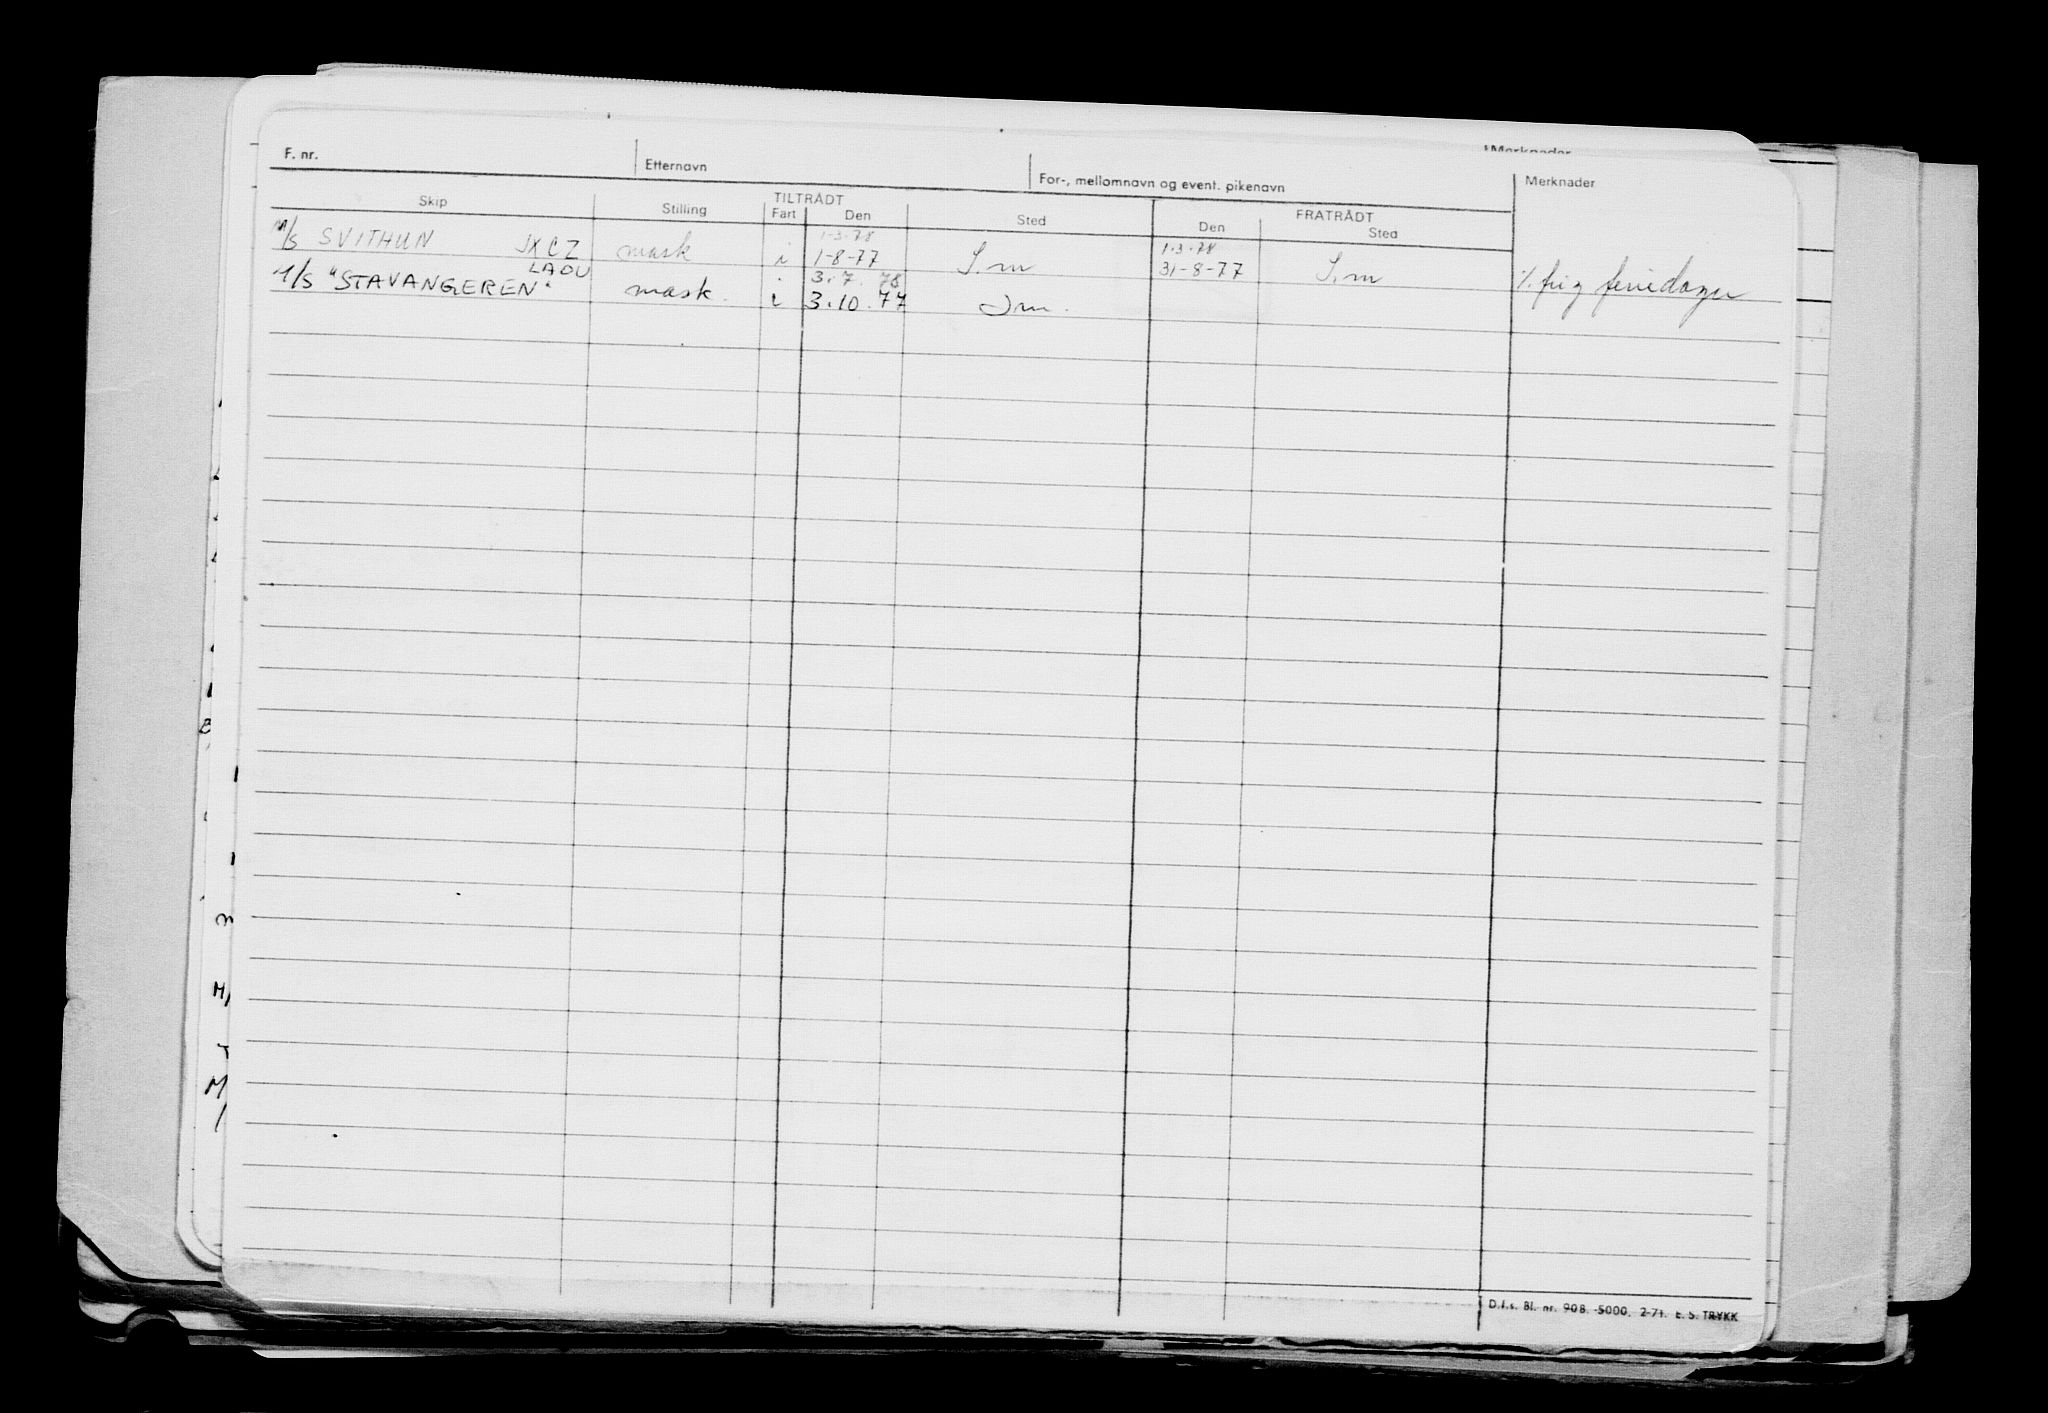 F. nr.
Etternavn
For-, mellomnavn og event. pikenavn
Merknader
Merknader
Skip
Stilling
TILTRÅDT
Fart
Den
Sted
FRATRÅDT
Den
Sted
1-3-78
1-3-78
M/S SVITHUN JXCZ mask i 1-8-77 S.m 31-8-77 S.m
LAOU 3.7.78
M/S "STAVANGEREN" mask. i 3.10.77 Sm. feriedager
D.f.s. Bl. nr. 908. -5000. 2-71. E. S. TRYKK